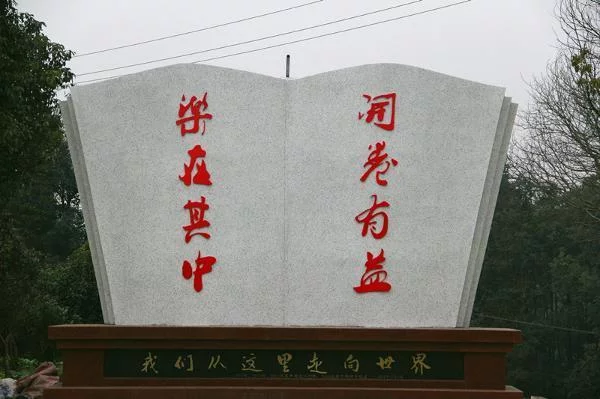 開卷有益
樂在其中
我们从这里走向世界